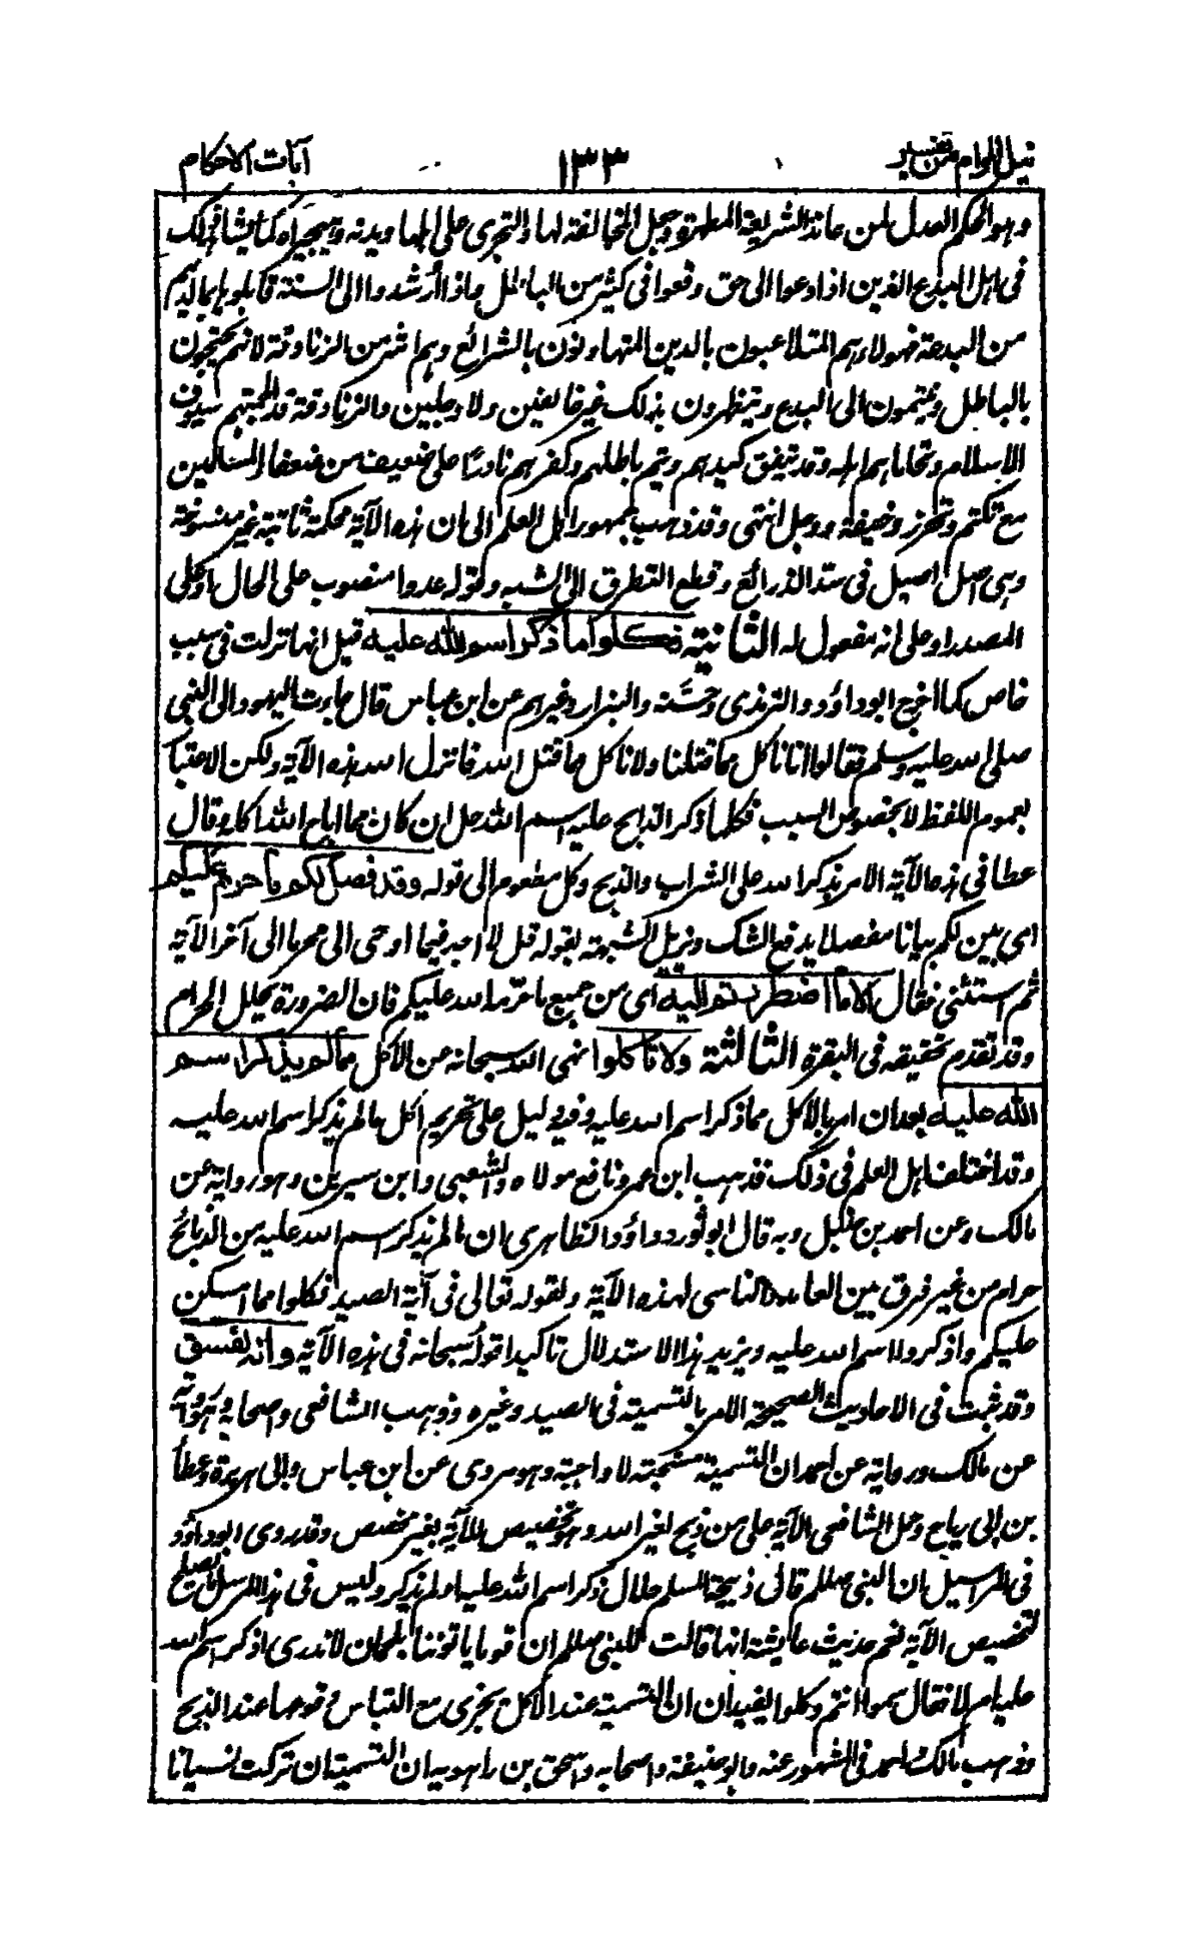 نيل المرام من تفسير
١٣٣
آيات الاحكام
وهو الحكم العدل لمن عاند الشريعة المطهرة وجعل المخالفة لها والتجرى على اهلها ديدنه وهجيراه كما يشاهد ذلك
فى اهل البدع الذين اذا دعوا الى حق وقعوا فى كثير من الباطل واذا ارشدوا الى السنة قابلوها بما لديهم
من البدعة فهولاء هم المتلاعبون بالدين المتهاونون بالشرائع وهم اشر من الزنادقة لانهم يحتجون
بالباطل وينتمون الى البدع ويتظهرون بذلك غير خائفين ولا وجلين والزنادقة قد الجمتهم سيوف
الاسلام وتحاماهم اهله وقد ينفق كيدهم ويتم باطلهم وكفرهم نادرا على ضعيف من ضعفاء المسلمين
مع تكتم وتحرز وخيفة ووجل انتهى وقد ذهب جمهور اهل العلم الى ان هذه الآية محكمة ثابتة غير منسوخة
وهى اصل اصيل فى سد الذرائع وقطع التطرق الى الشبه وقوله عدوا منصوب على الحال او على
المصدر او على انه مفعول له الثانية فكلوا مما ذكر اسم الله عليه قيل انها نزلت فى سبب
خاص كما اخرج ابو داؤد والترمذى وحسنه والبزار وغيرهم عن ابن عباس قال جاءت اليهود الى النبى
صلى الله عليه وسلم فقالوا انا نأكل مما قتلنا ولا نأكل مما قتل الله فانزل الله هذه الآية ولكن الاعتبار
بعموم اللفظ لا بخصوص السبب فكلما ذكر الذابح عليه اسم الله حل ان كان مما اباح الله اكله وقال
عطا فى هذه الآية الامر بذكر الله على الشراب والذبح وكل مطعوم الى قوله وقد فصل لكم ما حرم عليكم
اى بين لكم بيانا مفصلا يدفع الشك ويزيل الشبهة بقوله قل لا اجد فيما اوحى الى محرما الى آخر الآية
ثم استثنى فقال الا ما اضطررتم اليه اى من جميع ما حرمه الله عليكم فان الضرورة تحلل الحرام
وقد تقدم تحقيقه فى البقرة الثالثة ولا تأكلوا نهى الله سبحانه عن الأكل مما لم يذكر اسم
الله عليه بعد ان امر بالأكل مما ذكر اسم الله عليه وفيه دليل على تحريم أكل ما لم يذكر اسم الله عليه
وقد اختلف اهل العلم فى ذلك فذهب ابن عمر ونافع مولاه والشعبى وابن سيرين وهو رواية عن
مالك وعن احمد بن حنبل وبه قال ابو ثور وداؤد الظاهرى ان ما لم يذكر اسم الله عليه من الذبائح
حرام من غير فرق بين العامد والناسى لهذه الآية ولقوله تعالى فى آية الصيد فكلوا مما امسكن
عليكم واذكروا اسم الله عليه ويزيد هذا الاستدلال تاكيدا قوله سبحانه فى هذه الآية وانه لفسق
وقد ثبت فى الاحاديث الصحيحة الامر بالتسمية فى الصيد وغيره وذهب الشافعى واصحابه وهو رواية
عن مالك ورواية عن احمد ان التسمية مستحبة لا واجبة وهو مروى عن ابن عباس وابى هريرة وعطاء
بن ابى رباح وحمل الشافعى الآية على من ذبح لغير الله وهو تخصيص للآية بغير مخصص وقد روى ابو داؤد
فى المراسيل ان النبى صللم قال ذبيحة المسلم حلال ذكر اسم الله عليه او لم يذكر وليس فى هذا المرسل ما يصلح
لتخصيص الآية نعم حديث عايشة انها قالت للنبى صللم ان قوما ياتوننا بلحمان لا ندرى اذكر اسم الله
عليه ام لا فقال سموا انتم وكلوا يفيد ان التسمية عند الأكل تجزى مع التباس وقوعها عند الذبح
وذهب مالك واحمد فى المشهور عنه وابو حنيفة واصحابه واسحق بن راهويه ان التسمية ان تركت نسيانا